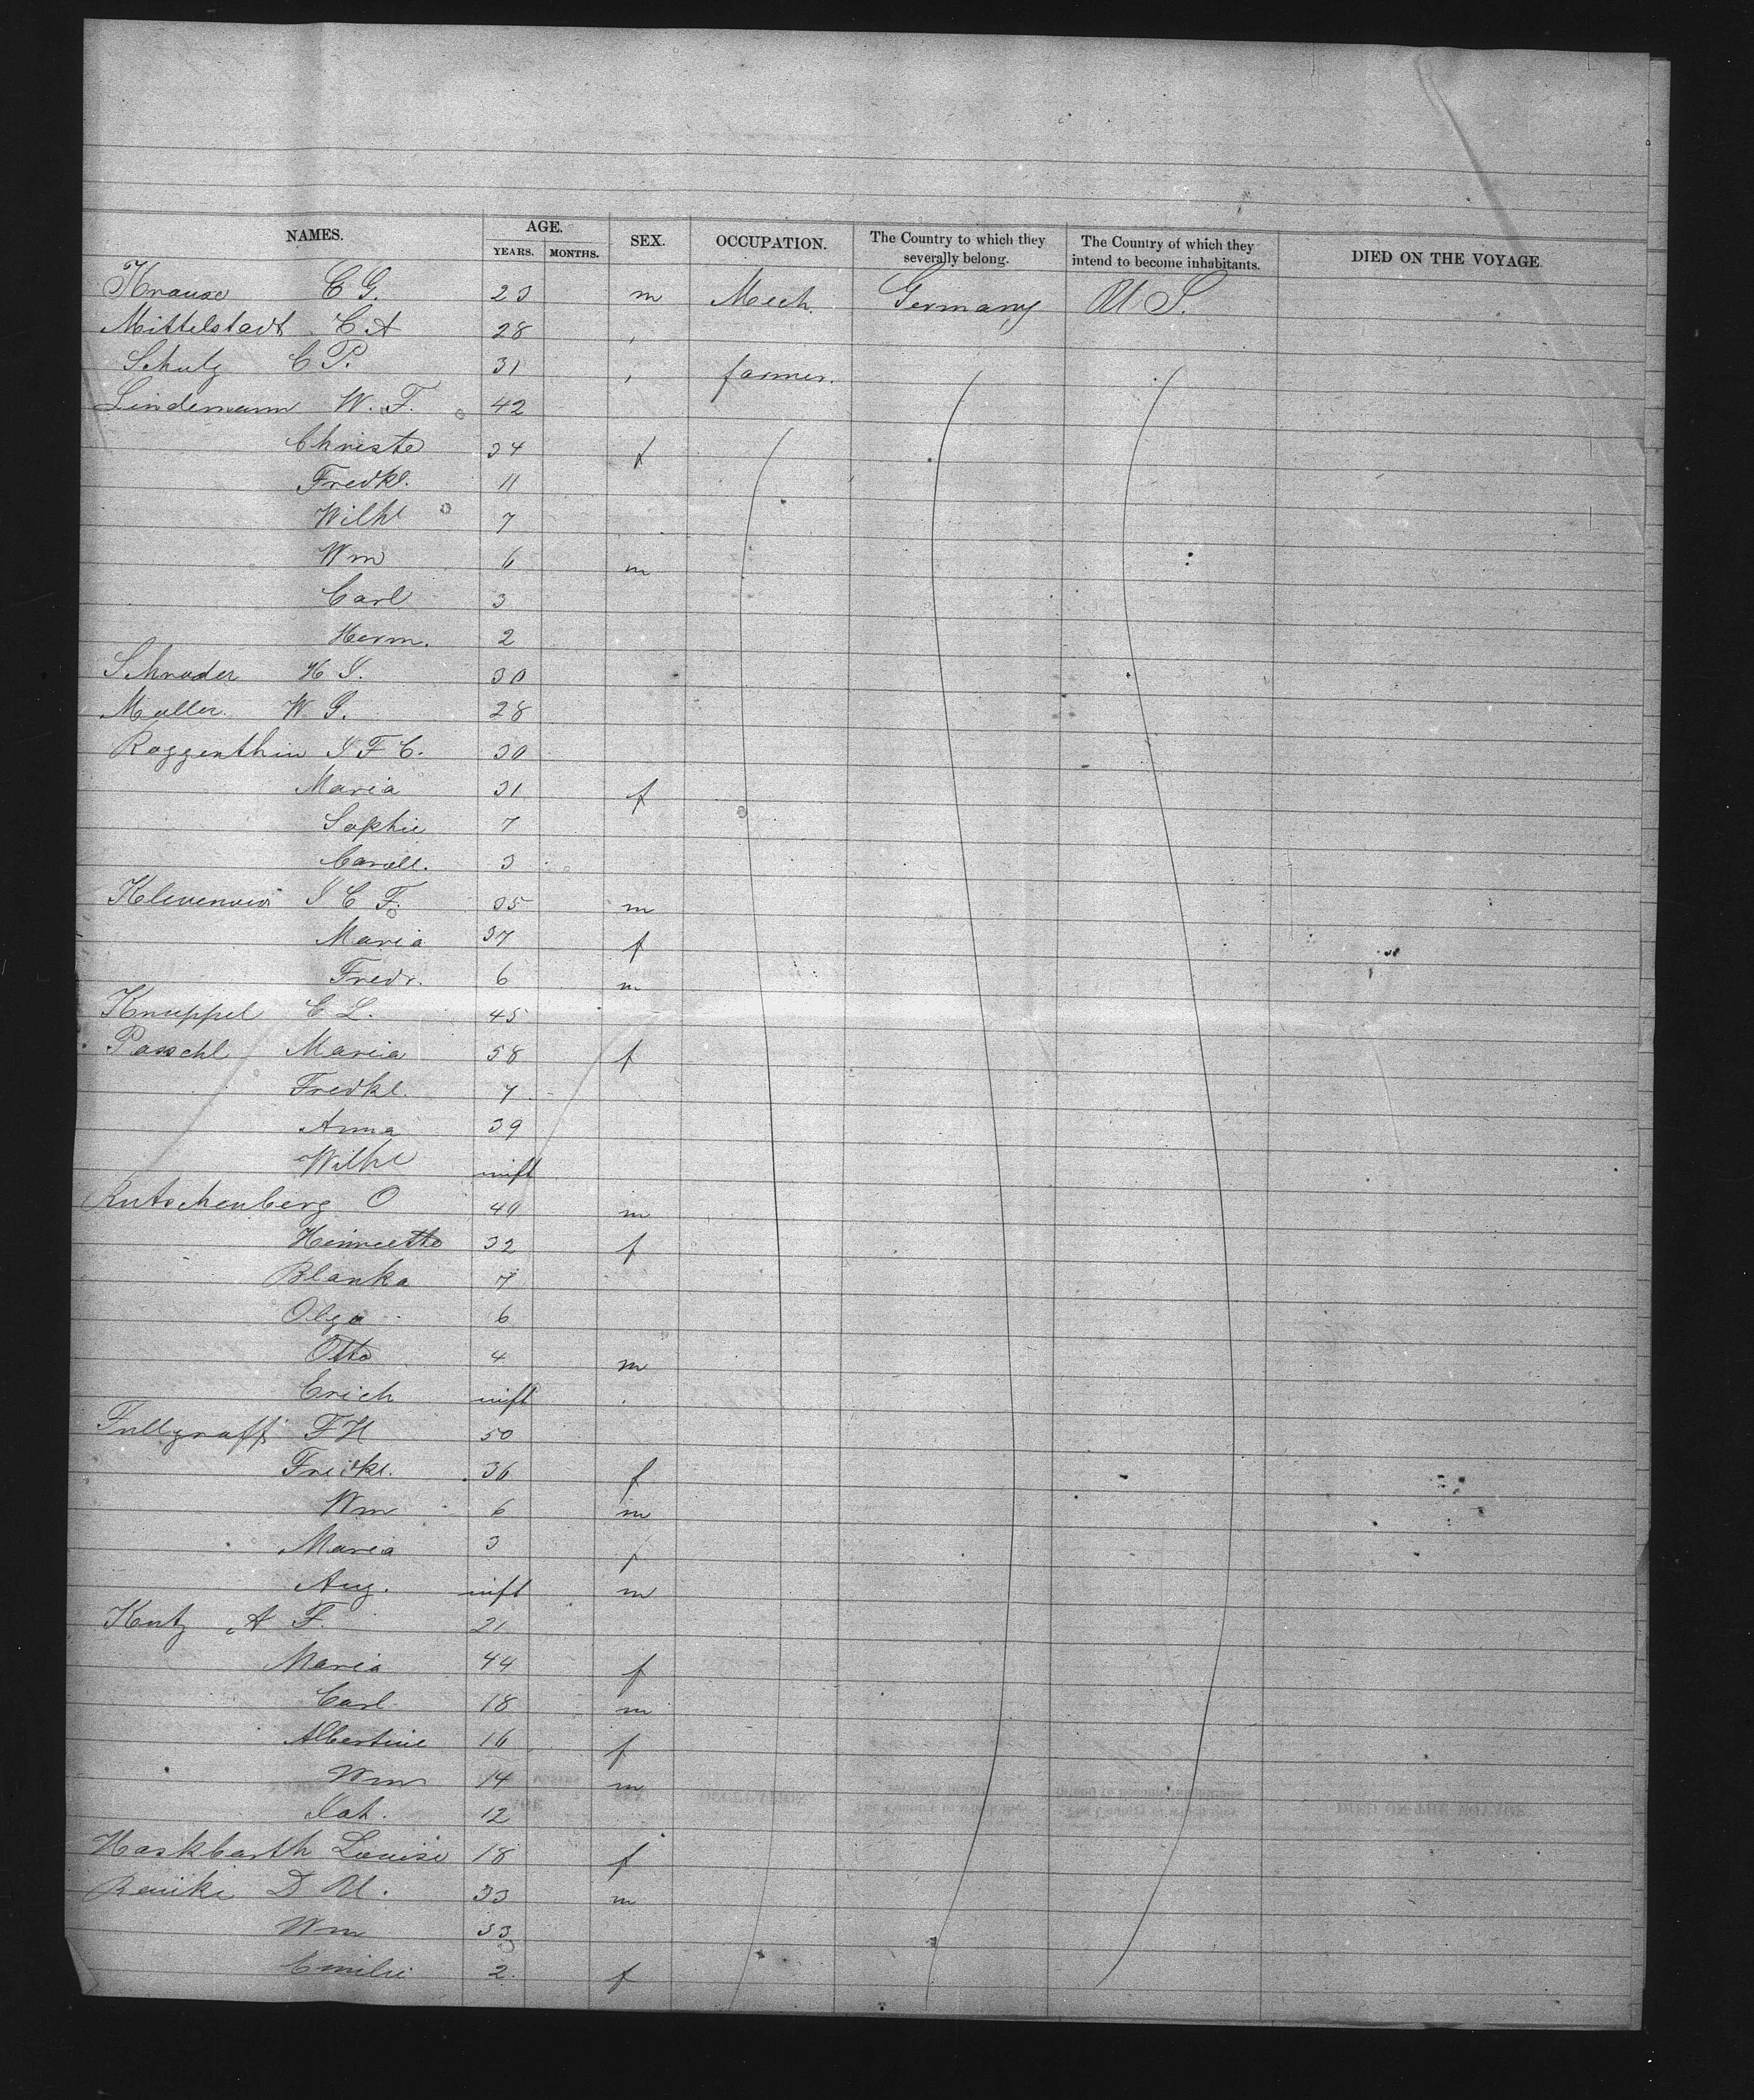 NAMES. AGE. SEX. OCCUPATION. The Country to which they severally belong. The Country of which they intend to become inhabitants. DIED ON THE VOYAGE.
YEARS. MONTHS.
Krause C G. 23 m Mech. Germany U S.
Mittelstadt C A 28 "
Schulz C P. 31 " farmer.
Lindemann W. F. 42
Christe 34 f
Fredke. 11
Wilhe 7
Wm 6 m
Carl 3
Herm. 2
Schroder H J. 30
Muller W G. 28
Roggenthin J F C. 30
Maria 31 f
Sophie 7
Caroll. 3
J C F. 35 m
Maria 37 f
Fredr. 6 m
Knuppel C L. 45
Paschl Maria 58 f
Fredke. 7
Anna 39
Wilhe inft
Rutschenberg O 40 m
Henriette 32 f
Blanka 7
Olga 6
Otto 4 m
Erich inft
Fullgraff F H 50
Fredke. 36 f
Wm 6 m
Maria 3 f
Aug. inft m
Kutz A F. 21
Maria 44 f
Carl 18 m
Albertine 16 f
Wm 14 m
Joh. 12
Haskbarth Louise 18 f
D U. 33 m
Wm 33
Emilie 2 f